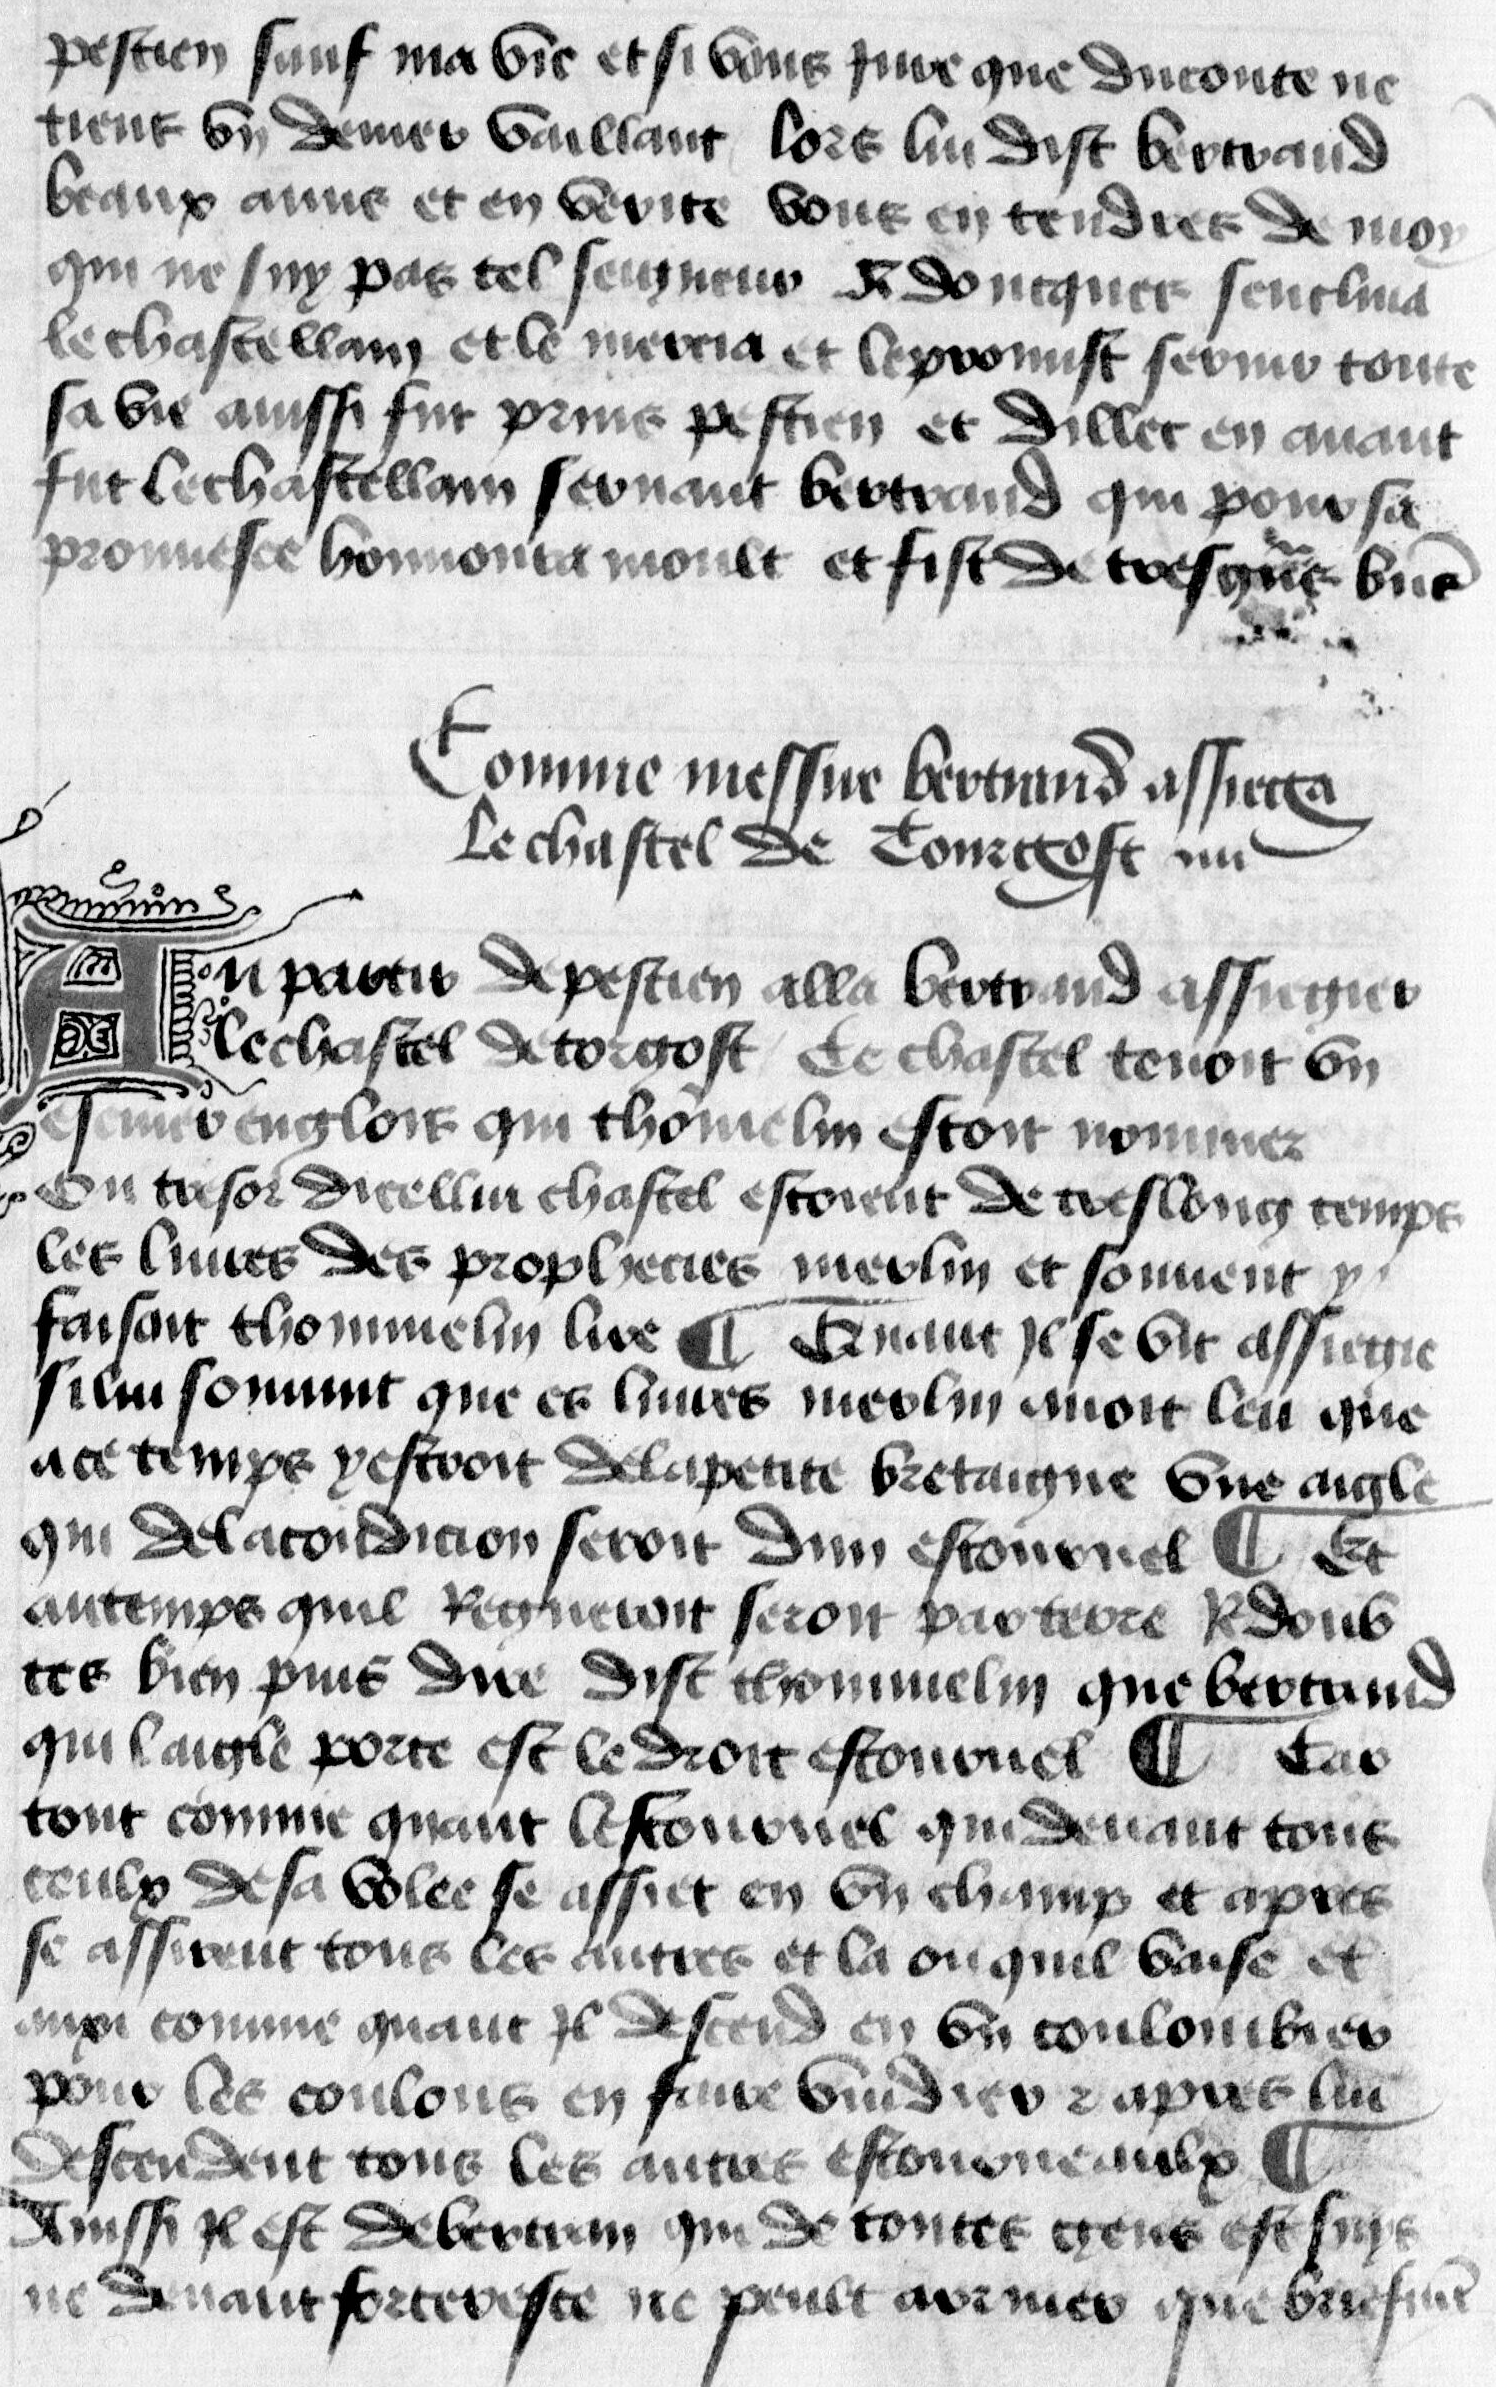 pestien sauf ma vie et si vous jure que du conte ne
tient vn denier vaillant lors lui dist bertrand
beaux amis et en verite vous en tendres de moy
qui ne suy pas tel seigneur Adoncques senclina
le chastellain et le mercia et le promist seruir toute
sa vie ainssi fut prins pestien et dillec en auant
fut le chastellain seruant bertrand qui pour sa
promesce honnoura moult et fist de tresgrãs biẽs
Comme messire bertrand assiega
Le chastel de Tourgost
Au partir de pestien alla bertrand assiegier
le chastel de torgost Ce chastel tenoit vn
escuier englois qui thommelin estoit nommez
Ou tresor dicellui chastel estoient de treslong temps
les liures des prophecies merlin et souuent y
faisait thommelin lire ¶ Quant jl se vit assiegie
si lui souuint que es liures merlin auoit leu que
a ce temps ystroit de la petite bretaigne vne aigle
qui de la condicion seroit dun estournel ¶ Et
au temps quil Regneroit seroit par terre Redoub
tes bien puis dire dist thommelin que bertrand
qui laigle porte est le droit estournel ¶ Car
tout comme quant lestournel qui deuant tous
ceulx de sa volee se assiet en vn champ et apres
se assirent tous les autres et la ou quil voise et
aixi comme quant jl descend en vn coulombier
pour les coulons en faire vuidier ⁊ apres lui
descendent tous les autres estourneaulx ¶
Ainssi jl est de bertran qui de toutes gens est suys
ne deuant forteresce ne peult arriuer que briefmẽt